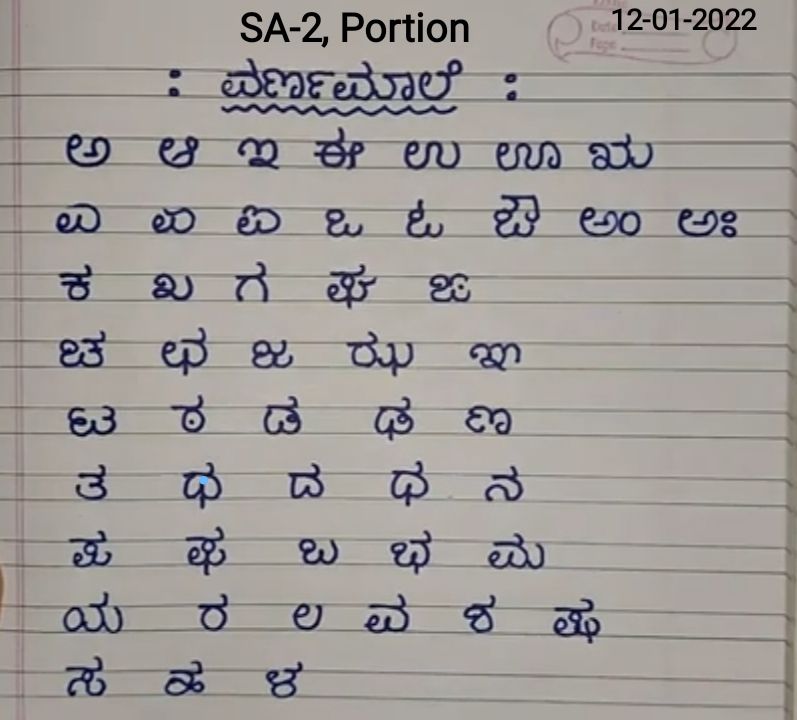 SA-2, Portion 12-01-2022
Date
Page
: ವರ್ಣಮಾಲೆ :
ಅ ಆ ಇ ಈ ಉ ಊ ಋ
ಎ ಏ ಐ ಒ ಓ ಔ ಅಂ ಅಃ
ಕ ಖ ಗ ಘ ಙ
ಚ ಛ ಜ ಝ ಞ
ಟ ಠ ಡ ಢ ಣ
ತ ಥ ದ ಧ ನ
ಪ ಫ ಬ ಭ ಮ
ಯ ರ ಲ ವ ಶ ಷ
ಸ ಹ ಳ